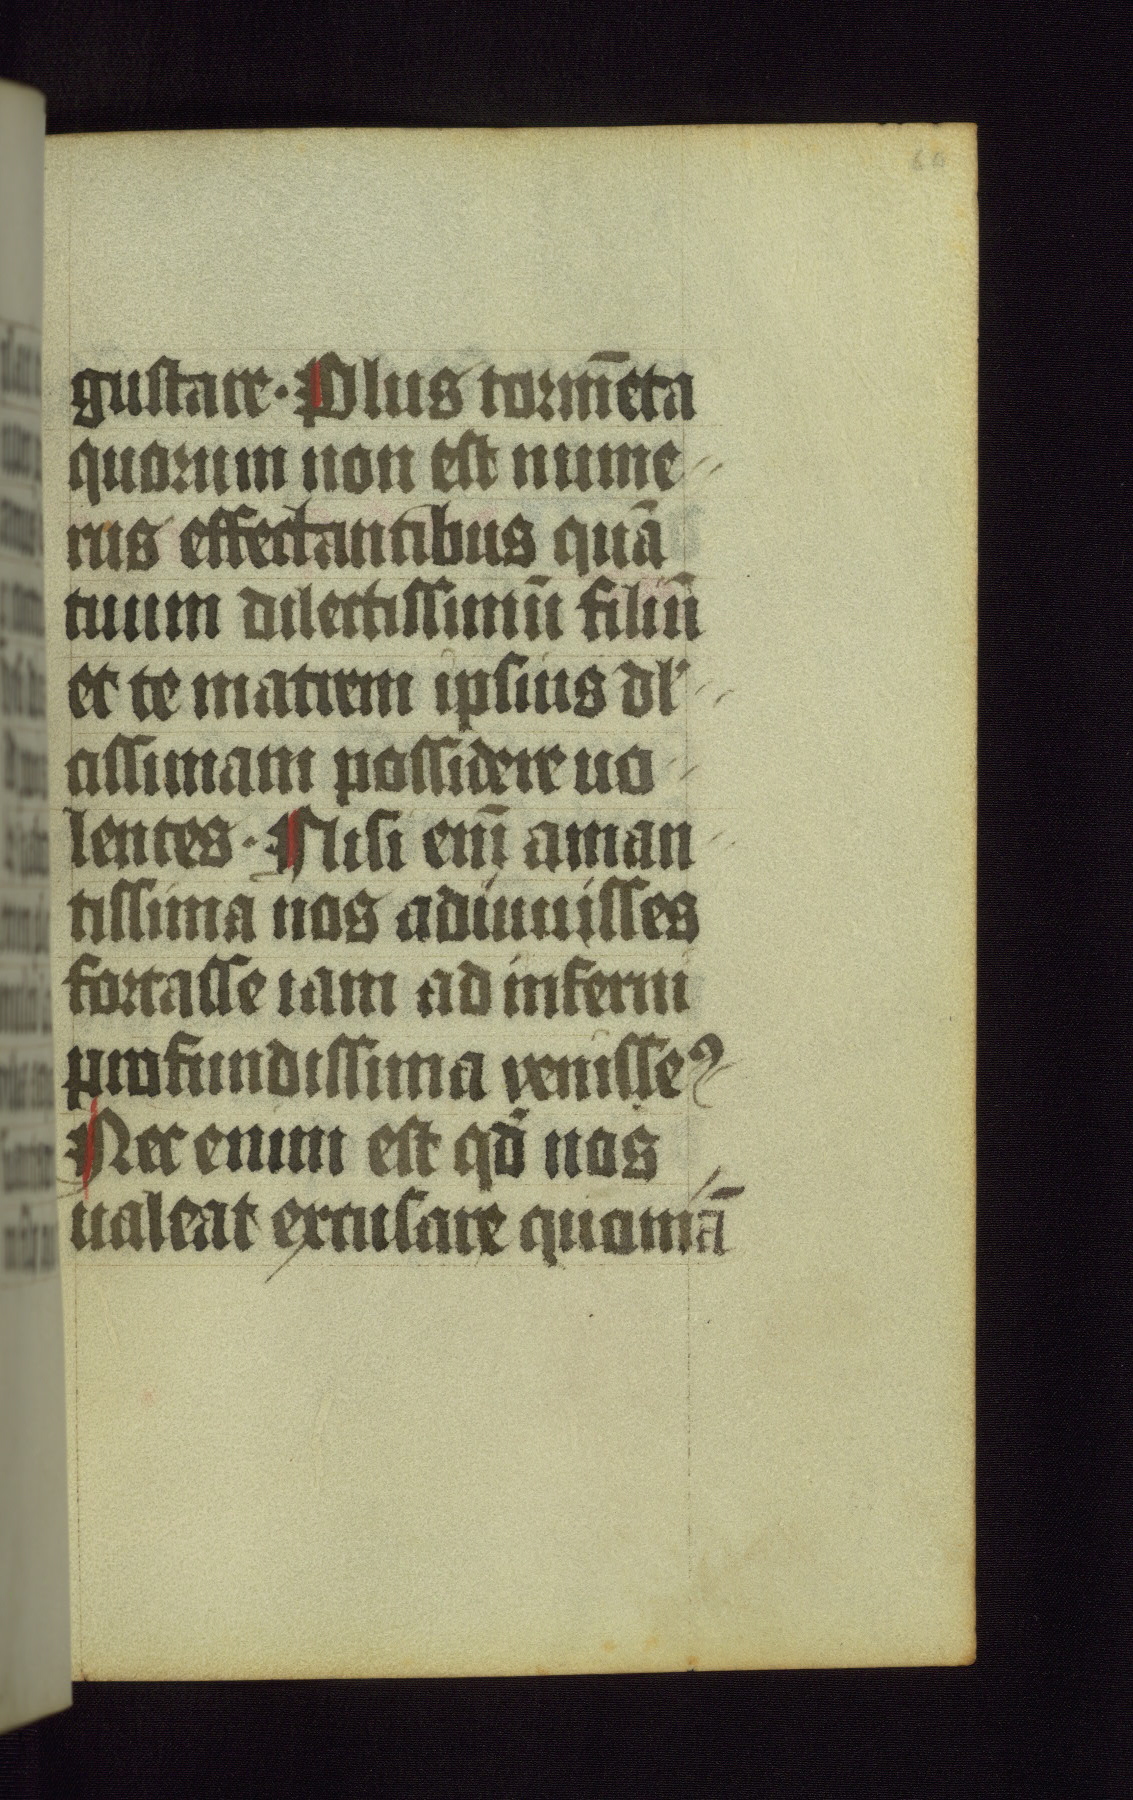 60
gustare. Plus torm̄eta
quorum non est nume
rus effectantibus quā
tuum dilectissimū filiū
et te matrem ipsius dl'
cissimam possidere uo
lentes. Nisi eni̅ aman
tissima nos adiuuisses
fortasse iam ad inferni
profundissima venisse
Nec enim est qd̄ nos
ualeat excusare quoniā